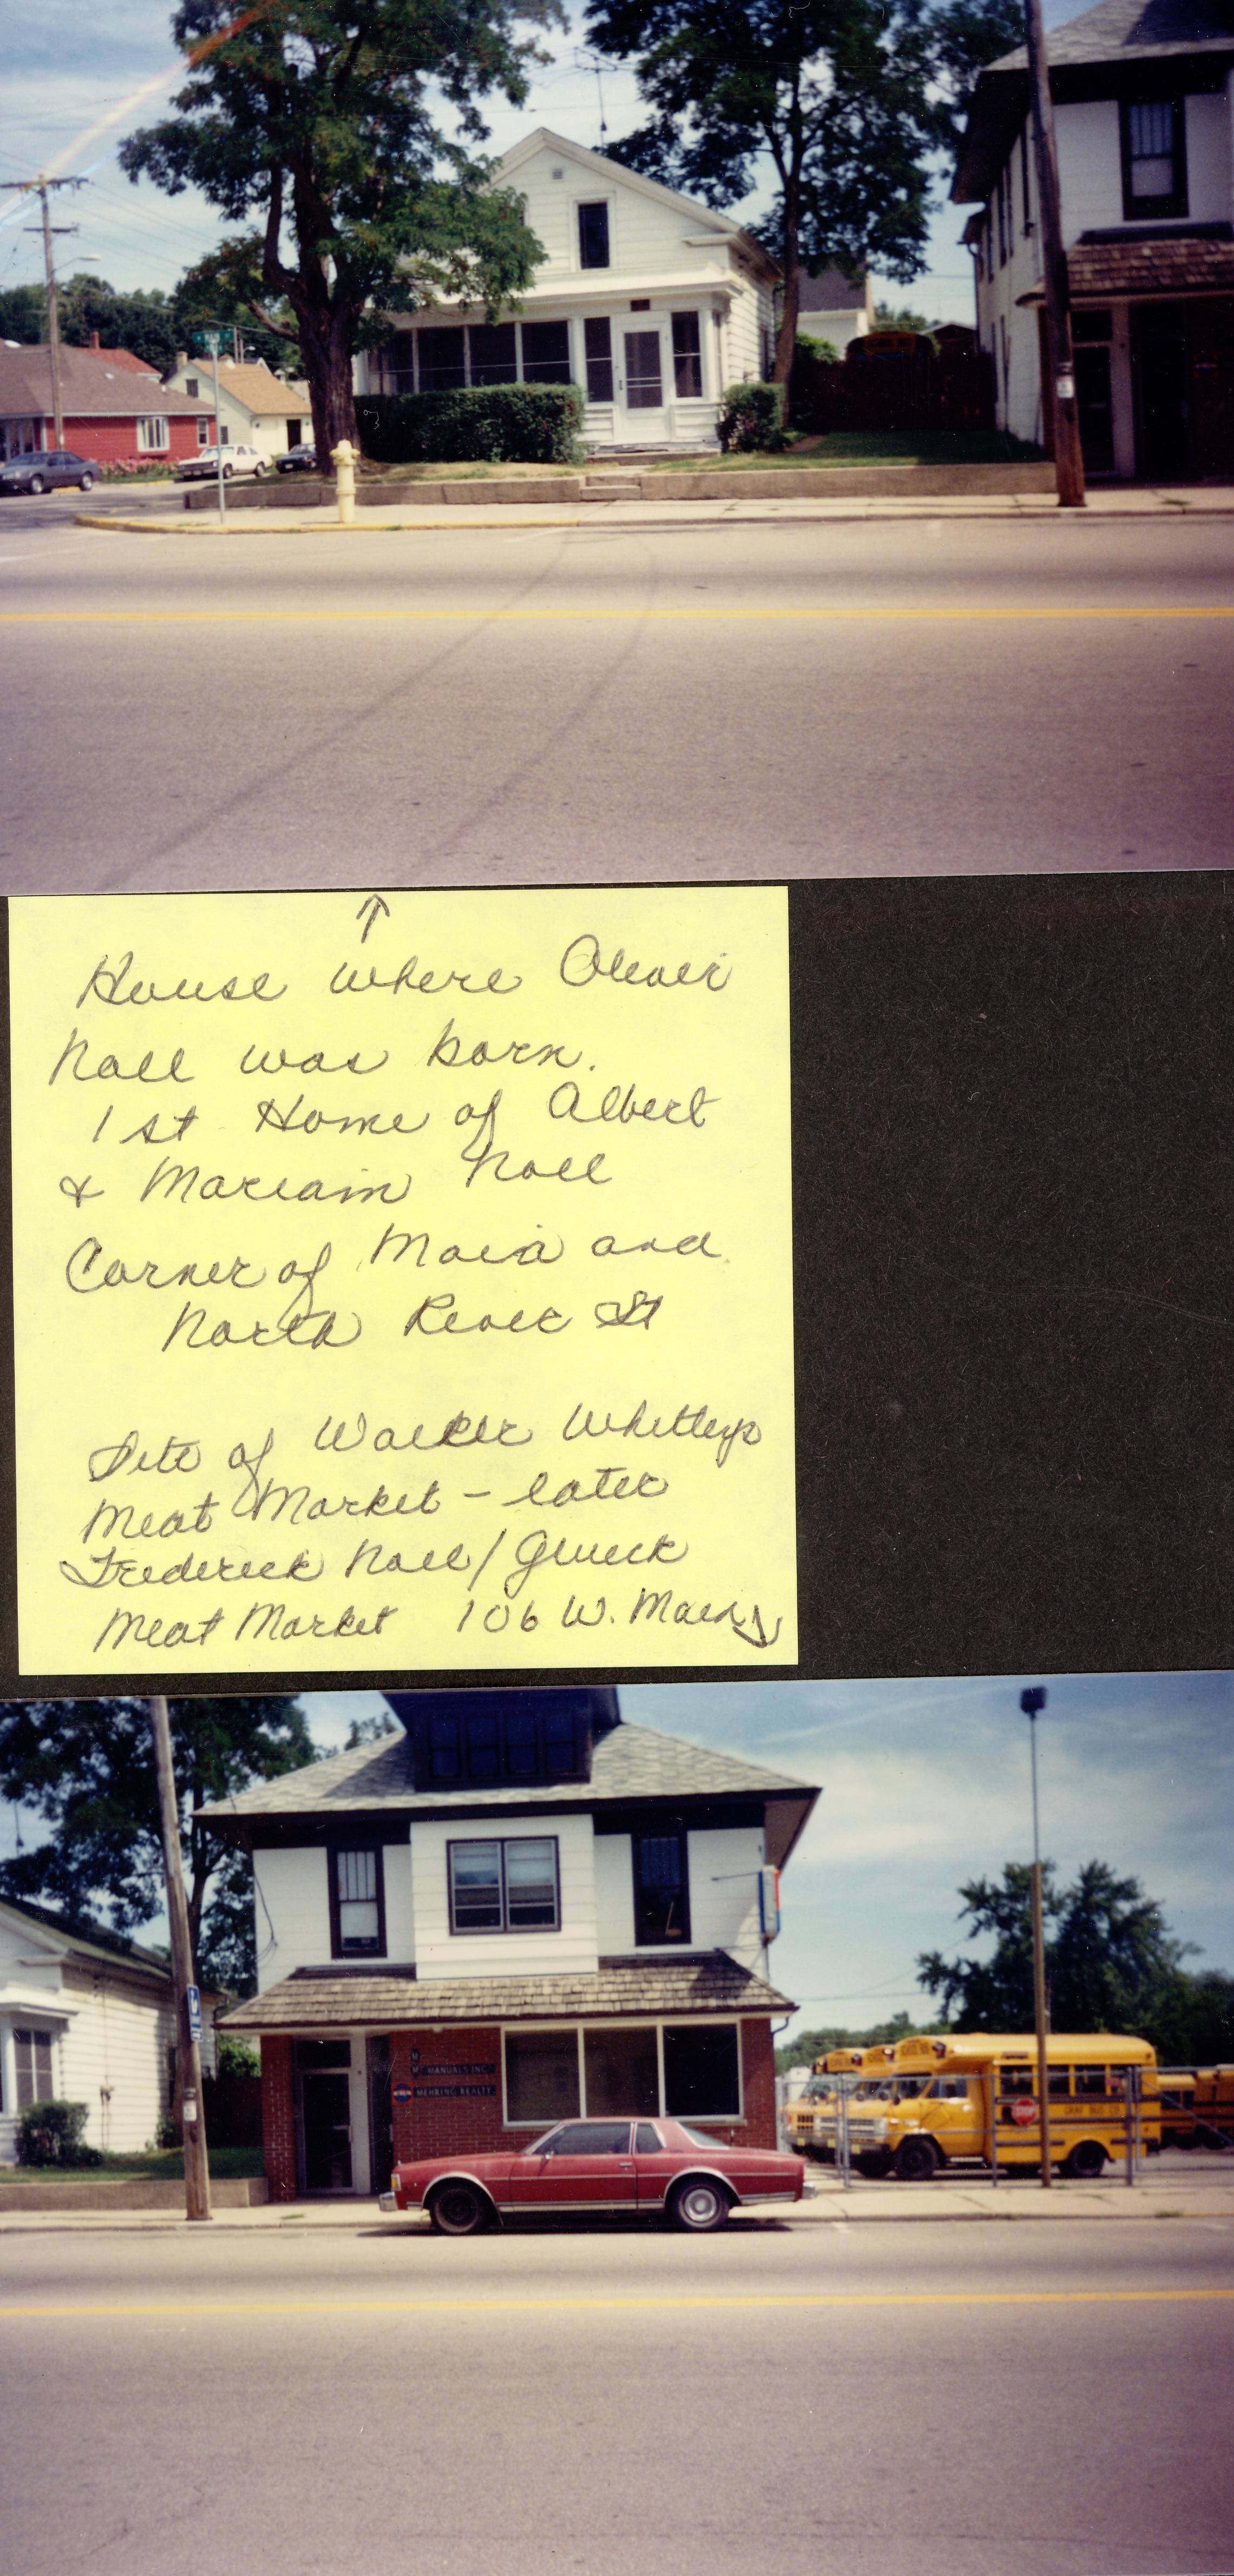 MAIN
House where Oliver
Noll was born.
1st Home of Albert
& Mariam Noll
Corner of Main and
North River St
Site of Walker Whitleys
Meat Market – later
Frederick Noll/Glueck
Meat Market 106 W. Main
MANUALS INC.
MEHRING REALTY
SCHOOL BUS
GRAF BUS CO.